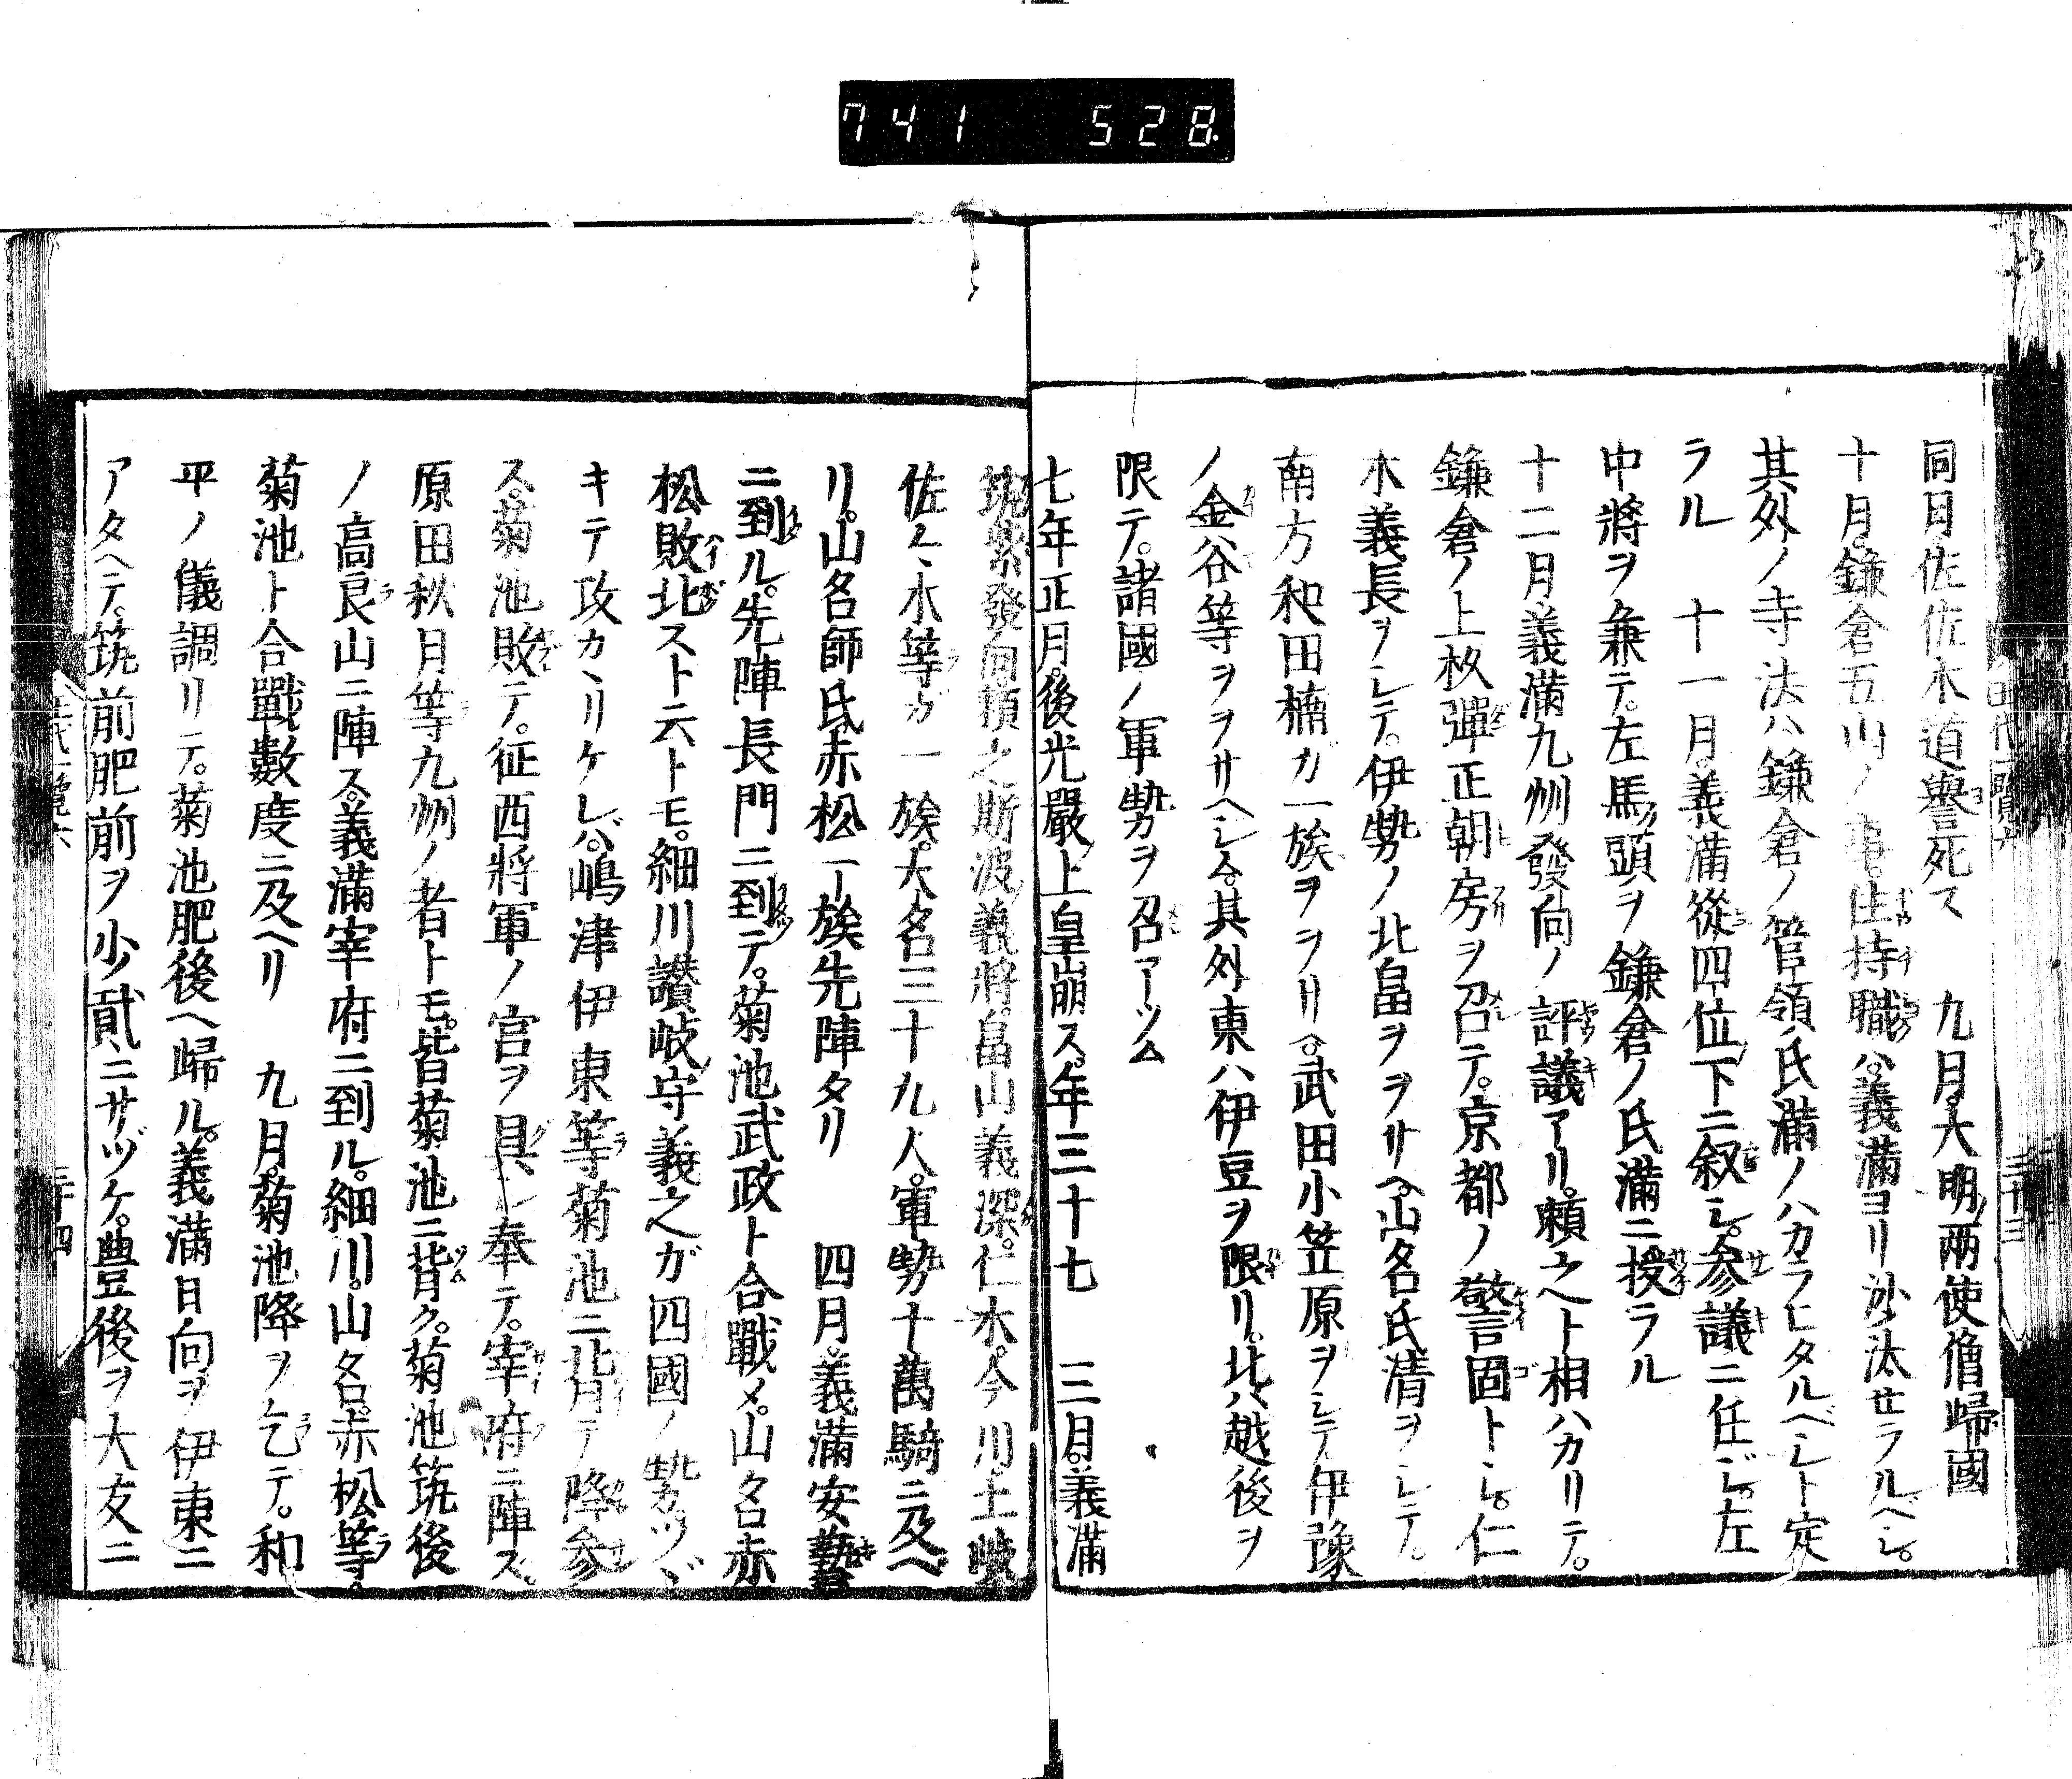 741 528
同月佐佐木道譽死ス 九月大明ノ兩使僧歸國
十月鎌倉五山ノ事。住持職ハ。義滿ヨリ沙汰せラルベシ。
其外ノ寺法ハ鎌倉ノ管領氏滿ノハカラヒタルベシト定
ラル 十一月。義滿從四位下ニ叙シ。参議ニ任ジ。左
中將ヲ兼テ。左馬頭ヲ鎌倉ノ氏滿ニ授ラル
十二月義滿九州發向ノ評議アリ。頼之ト相ハカリテ。
鎌倉ノ上杉彈正朝房ヲ召テ。京都ノ警固トシ。仁
木義長ヲシテ。伊勢ノ北畠ヲヲサヘ。山名氏清ヲシテ。
南方和田楠ガ一族ヲヲサヘ。武田小笠原ヲシテ伊豫
ノ金谷等ヲヲサヘシム。其外東ハ伊豆ヲ限リ。北ハ越後ヲ
限テ。諸國ノ軍勢ヲ召アツム
七年正月。後光嚴上皇崩ス。年三十七 三月。義滿
筑紫發向。頼之斯波義將。畠山義深。仁木。今川。土岐
佐々木等ガ一族。大名三十九人。軍勢十萬騎ニ及ヘ
リ。山名師氏赤松一族先陣タリ 四月。義滿安藝
ニ到ル。先陣長門ニ到テ。菊池武政ト合戰メ。山名赤
松敗北スト云トモ。細川讃岐守義之ガ四國ノ勢ツヾ
キテ攻カヽリケレバ。嶋津伊東等菊池ニ背テ降参
ス。菊池敗テ。征西將軍ノ宮ヲ具シ奉テ。宰府ニ陣ス。
原田秋月等九州ノ者トモ。皆菊池ニ背ク。菊池筑後
ノ高良山ニ陣ス。義滿宰府ニ到ル。細川。山名。赤松等。
菊池ト合戰數度ニ及ヘリ 九月。菊池降ヲ乞テ。和
平ノ儀調リテ。菊池肥後ヘ歸ル。義滿日向ヲ伊東ニ
アタヘテ。筑前肥前ヲ少貳ニサヅケ。豊後ヲ大友ニ